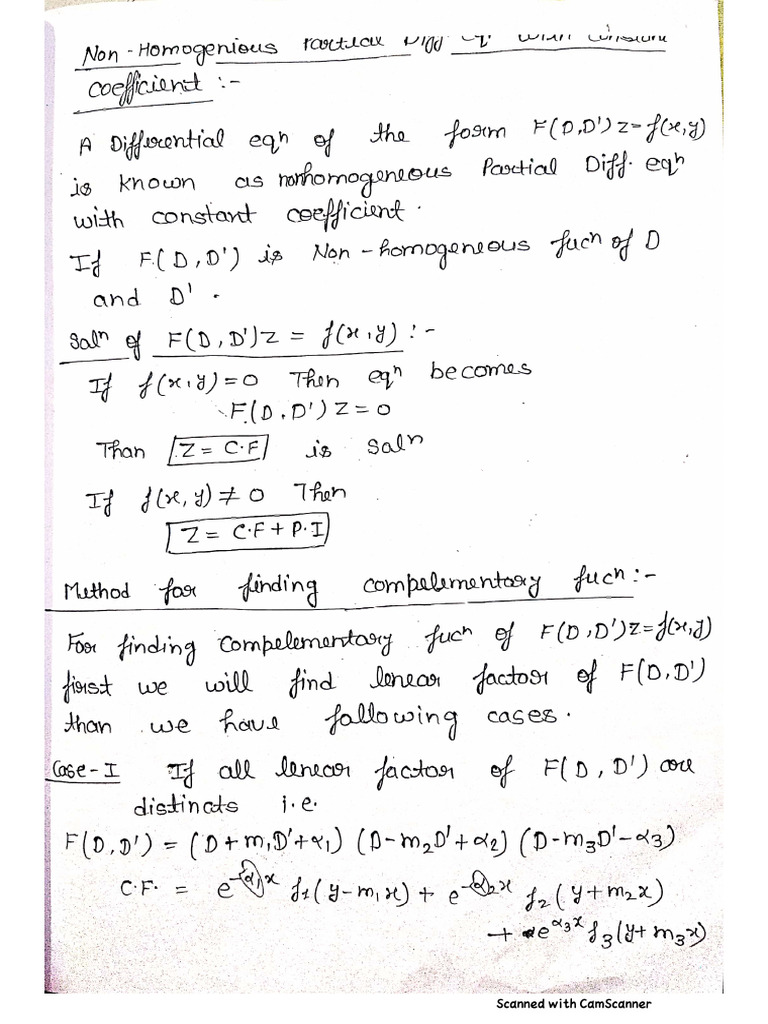 Non-Homogenious Partial Diff eqn with constant
coefficient :-
A Differential eqn of the form F(D,D')Z=f(x,y)
is known as nonhomogeneous Partial Diff. eqn
with constant coefficient.
If F(D,D') is Non-homogeneous fucn of D
and D'.
Saln of F(D,D')Z = f(x,y) :-
If f(x,y)=0 Then eqn becomes
F(D,D')Z=0
Than Z = C.F is Saln
If f(x,y)≠0 Then
Z = C.F + P.I
Method for finding compelementary fucn:-
For finding Compelementary fucn of F(D,D')Z=f(x,y)
first we will find lenear factor of F(D,D')
than we have following cases.
Case-I If all lenear factor of F(D,D') are
distincts i.e.
F(D,D') = (D+m₁D'+α₁) (D-m₂D'+α₂) (D-m₃D'-α₃)
C.F. = e^-α₁x f₁(y-m₁x) + e^-α₂x f₂(y+m₂x)
+ e^α₃x f₃(y+m₃x)
Scanned with CamScanner